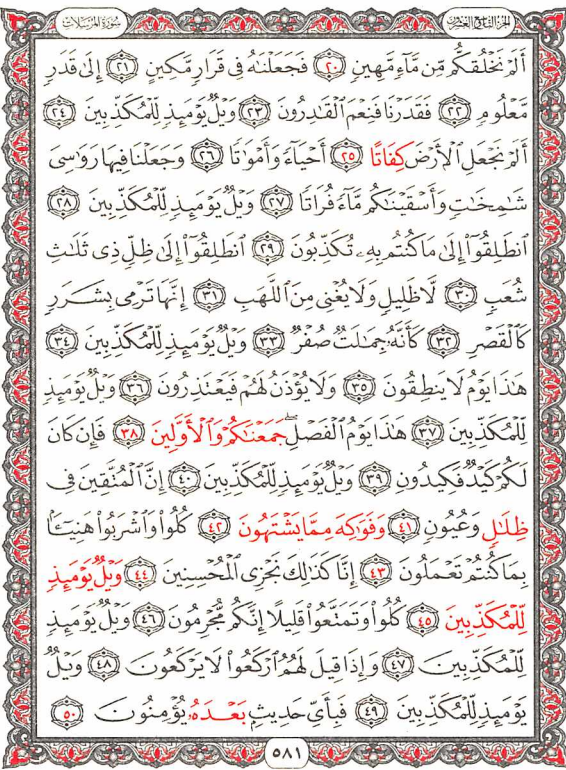 الجزء التاسع والعشرون سورة المرسلات
أَلَمْ نَخْلُقكُّم مِّن مَّآءٍ مَّهِينٍ ٢٠ فَجَعَلْنَٰهُ فِى قَرَارٍ مَّكِينٍ ٢١ إِلَىٰ قَدَرٍ
مَّعْلُومٍ ٢٢ فَقَدَرْنَا فَنِعْمَ ٱلْقَٰدِرُونَ ٢٣ وَيْلٌ يَوْمَئِذٍ لِّلْمُكَذِّبِينَ ٢٤
أَلَمْ نَجْعَلِ ٱلْأَرْضَ كِفَاتًا ٢٥ أَحْيَآءً وَأَمْوَٰتًا ٢٦ وَجَعَلْنَا فِيهَا رَوَٰسِىَ
شَٰمِخَٰتٍ وَأَسْقَيْنَٰكُم مَّآءً فُرَاتًا ٢٧ وَيْلٌ يَوْمَئِذٍ لِّلْمُكَذِّبِينَ ٢٨
ٱنطَلِقُوٓا۟ إِلَىٰ مَا كُنتُم بِهِۦ تُكَذِّبُونَ ٢٩ ٱنطَلِقُوٓا۟ إِلَىٰ ظِلٍّ ذِى ثَلَٰثِ
شُعَبٍ ٣٠ لَّا ظَلِيلٍ وَلَا يُغْنِى مِنَ ٱللَّهَبِ ٣١ إِنَّهَا تَرْمِى بِشَرَرٍ
كَٱلْقَصْرِ ٣٢ كَأَنَّهُۥ جِمَٰلَتٌ صُفْرٌ ٣٣ وَيْلٌ يَوْمَئِذٍ لِّلْمُكَذِّبِينَ ٣٤
هَٰذَا يَوْمُ لَا يَنطِقُونَ ٣٥ وَلَا يُؤْذَنُ لَهُمْ فَيَعْتَذِرُونَ ٣٦ وَيْلٌ يَوْمَئِذٍ
لِّلْمُكَذِّبِينَ ٣٧ هَٰذَا يَوْمُ ٱلْفَصْلِ ۖ جَمَعْنَٰكُمْ وَٱلْأَوَّلِينَ ٣٨ فَإِن كَانَ
لَكُمْ كَيْدٌ فَكِيدُونِ ٣٩ وَيْلٌ يَوْمَئِذٍ لِّلْمُكَذِّبِينَ ٤٠ إِنَّ ٱلْمُتَّقِينَ فِى
ظِلَٰلٍ وَعُيُونٍ ٤١ وَفَوَٰكِهَ مِمَّا يَشْتَهُونَ ٤٢ كُلُوا۟ وَٱشْرَبُوا۟ هَنِيٓـًٔۢا
بِمَا كُنتُمْ تَعْمَلُونَ ٤٣ إِنَّا كَذَٰلِكَ نَجْزِى ٱلْمُحْسِنِينَ ٤٤ وَيْلٌ يَوْمَئِذٍ
لِّلْمُكَذِّبِينَ ٤٥ كُلُوا۟ وَتَمَتَّعُوا۟ قَلِيلًا إِنَّكُم مُّجْرِمُونَ ٤٦ وَيْلٌ يَوْمَئِذٍ
لِّلْمُكَذِّبِينَ ٤٧ وَإِذَا قِيلَ لَهُمُ ٱرْكَعُوا۟ لَا يَرْكَعُونَ ٤٨ وَيْلٌ
يَوْمَئِذٍ لِّلْمُكَذِّبِينَ ٤٩ فَبِأَىِّ حَدِيثٍۭ بَعْدَهُۥ يُؤْمِنُونَ ٥٠
٥٨١